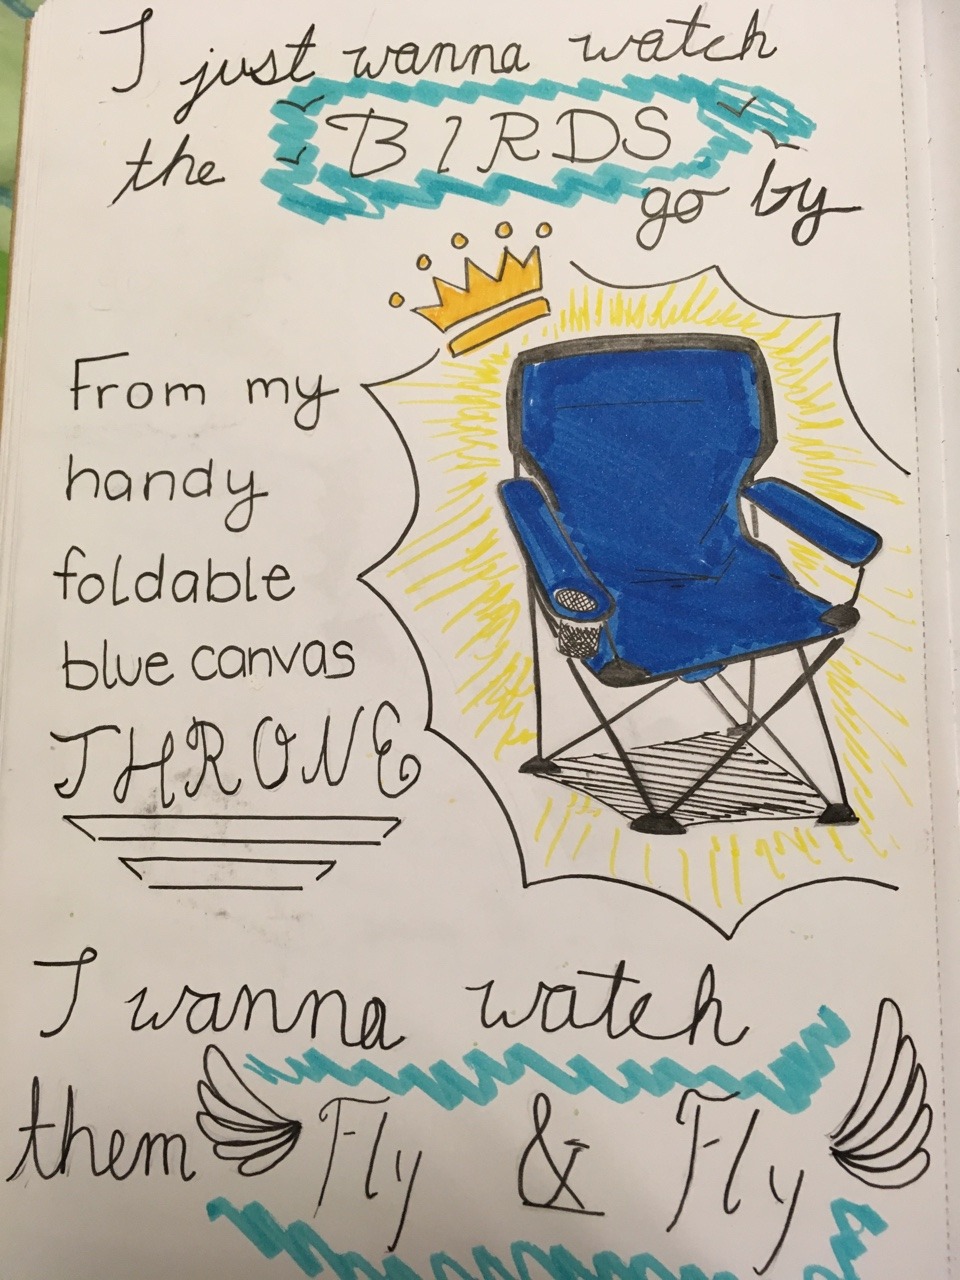 I just wanna watch
the BIRDS
go by
From my
handy
foldable
blue canvas
THRONE
I wanna watch
them Fly & Fly